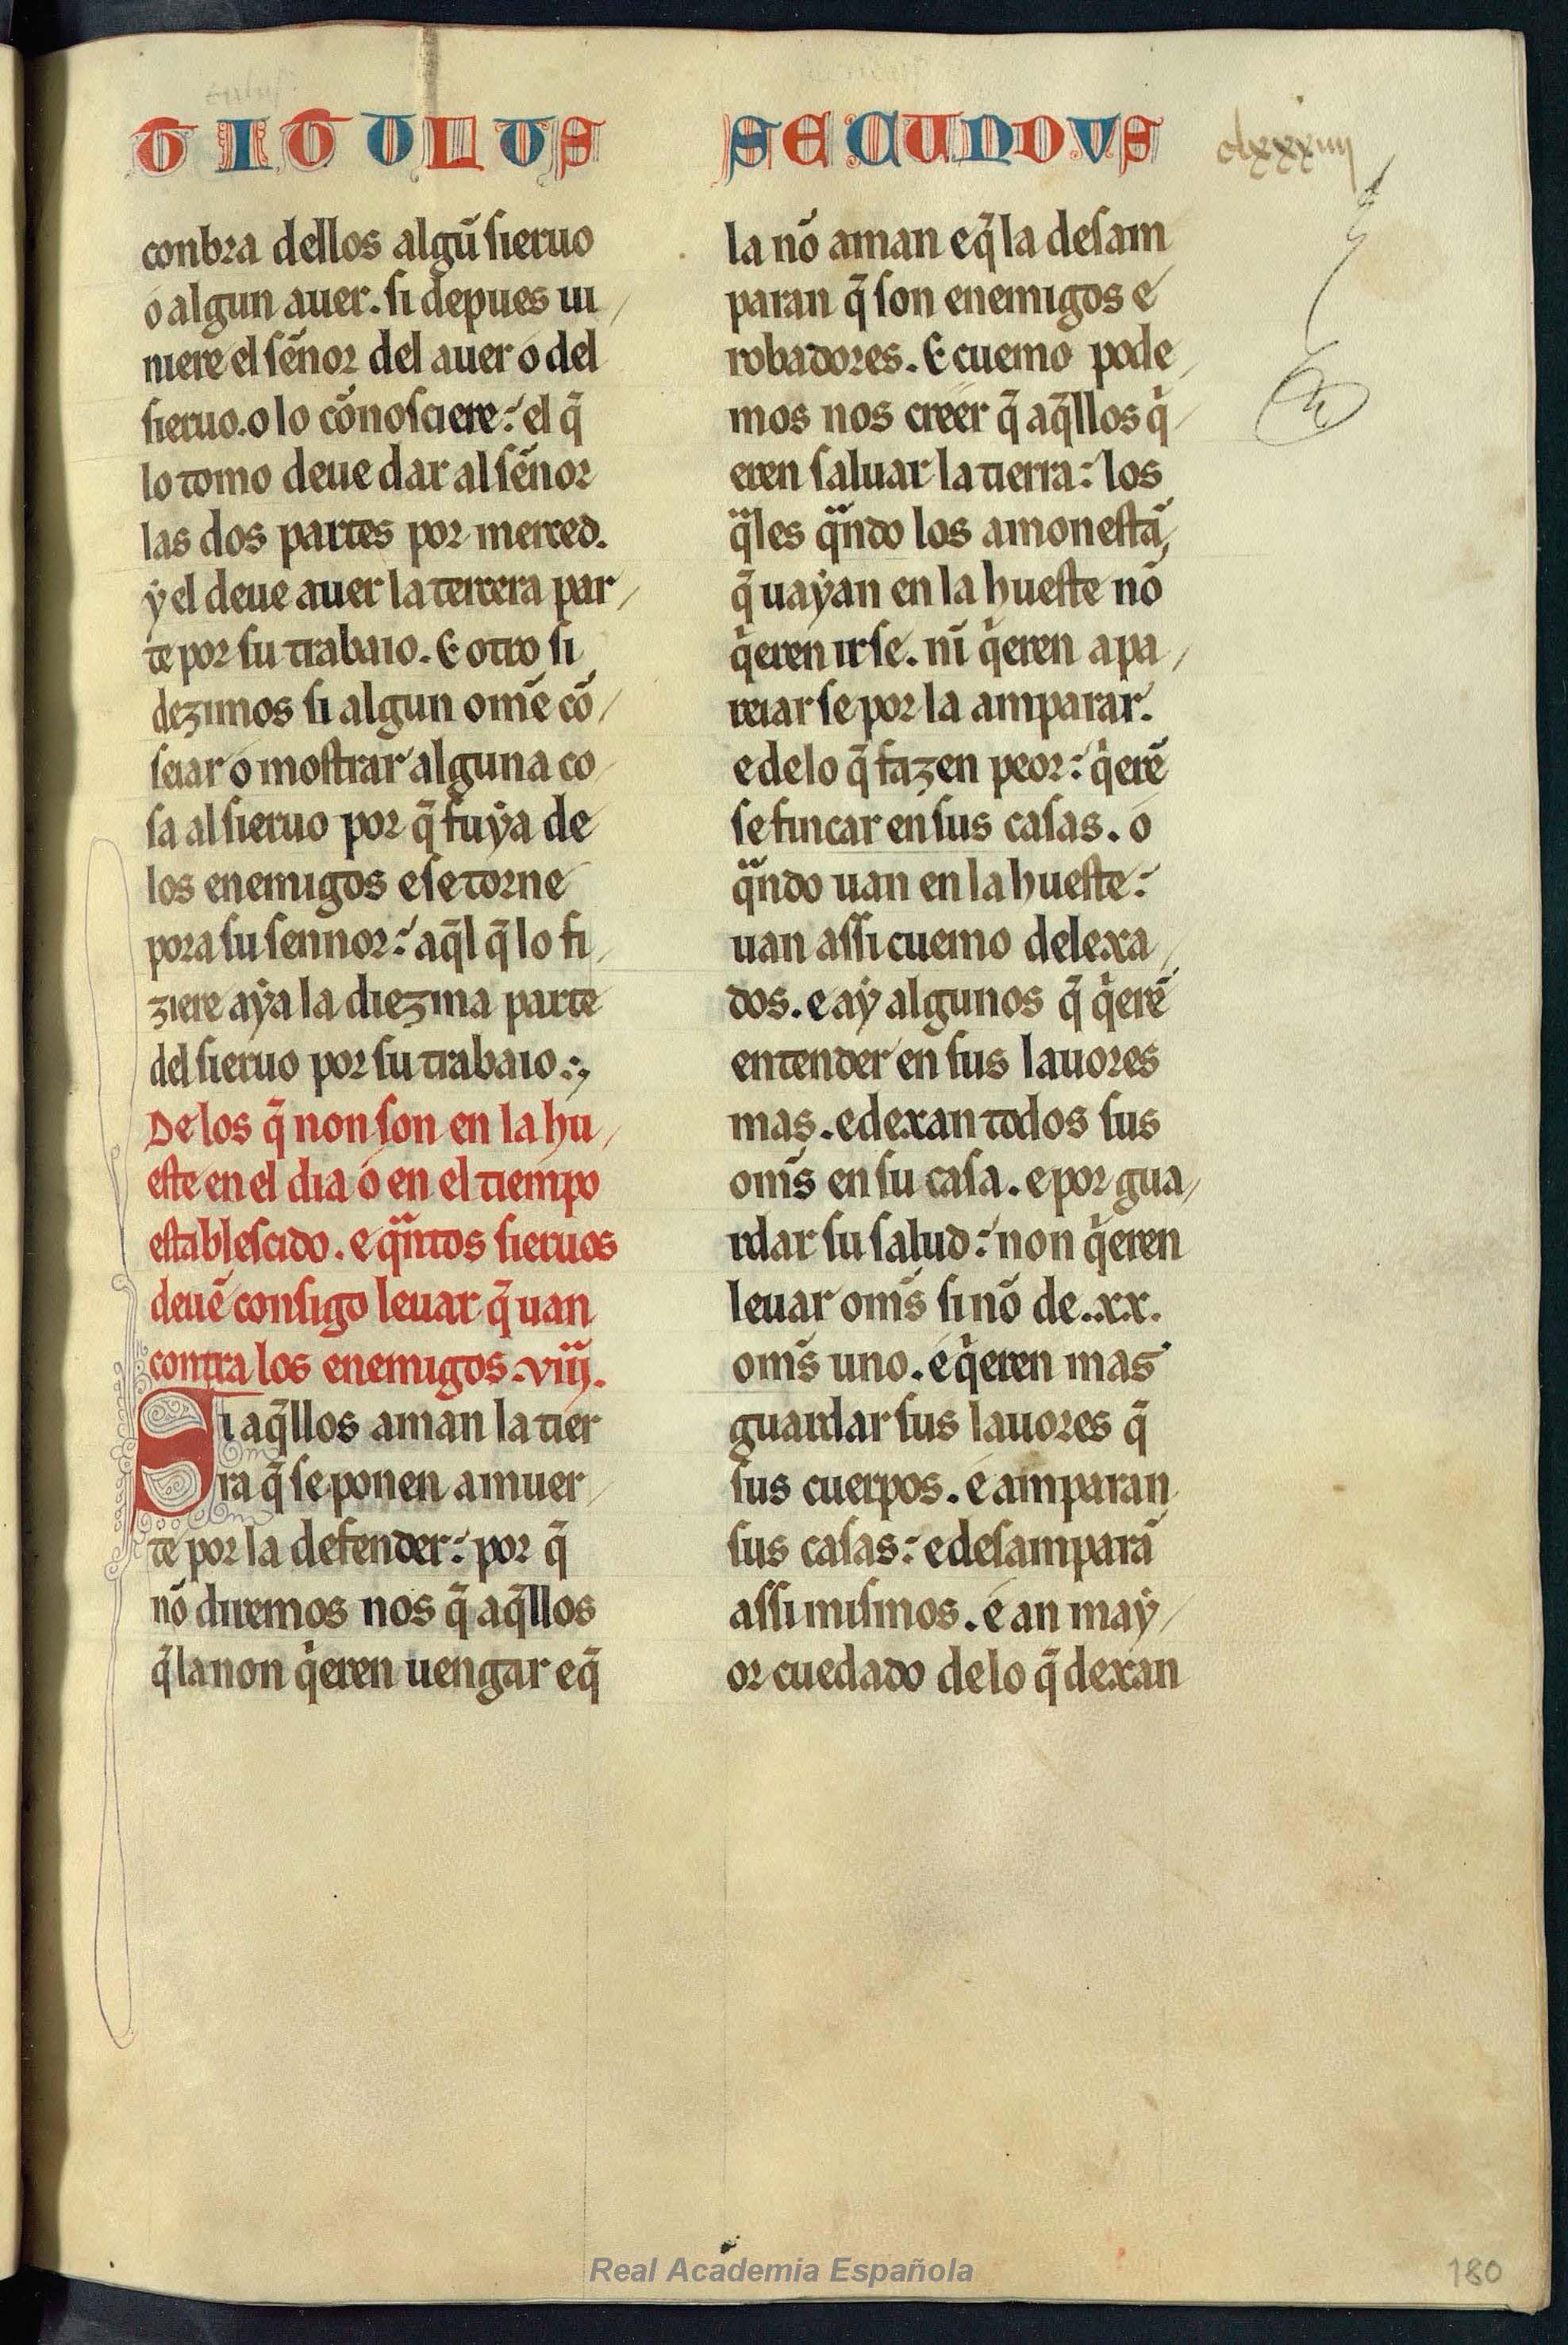 TITULUS SECUNDVS
clxxxiiii
conbra dellos algũ sieruo
o algun auer. si depues ui
niere el sẽnor del auer o del
sieruo. o lo cõnosciere: el q̃
lo tomo deue dar al sẽnor
las dos partes por merced.
ẏ el deue auer la tercera par
te por su trabaio. E otro si
dezimos si algun omẽ cõ
seiar o mostrar alguna co
sa al sieruo por q̃ fuẏa de
los enemigos e se torne
pora su sennor: aq̃l q̃ lo fi
ziere aẏa la diezma parte
del sieruo por su trabaio.
De los q̃ non son en la hu
este en el dia o en el tiempo
establescido. e qᷓntos sieruos
deuẽ consigo leuar q̃ uan
contra los enemigos. viij.
Si aq̃llos aman la tier
ra q̃ se ponen a muer
te por la defender: por q̃
nõ diremos nos q̃ aq̃llos
q̃ la non qͥeren uengar e q̃
la nõ aman e q̃ la desam
paran q̃ son enemigos e
robadores. E cuemo pode
mos nos creer q̃ aq̃llos qͥ
eren saluar la tierra: los
qᷓles qᷓndo los amonestã
q̃ uaẏan en la hueste nõ
qͥeren ir se. nĩ qͥeren apa
reiar se por la amparar.
e de lo q̃ fazen peor: qͥerẽ
se fincar en sus casas. o
qᷓndo uan en la hueste:
uan assi cuemo delexa
dos. e aẏ algunos q̃ qͥerẽ
entender en sus lauores
mas. e dexan todos sus
oms̃ en su casa. e por gua
rdar su salud: non qͥeren
leuar oms̃ si nõ de .xx.
oms̃ uno. e qͥeren mas
guardar sus lauores q̃
sus cuerpos. e amparan
sus casas: e desamparã
assi mismos. e an maẏ
or cuedado de lo q̃ dexan
Real Academia Española
180